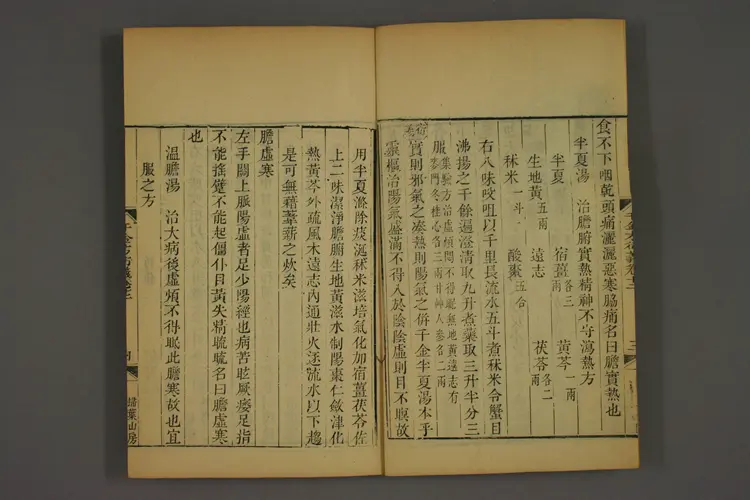 食不下咽乾頭痛灑灑惡寒脇痛名曰膽實熱也
半夏湯 治膽腑實熱精神不守瀉熱方
半夏 宿薑各三兩 黃芩一兩
生地黃五兩 遠志 茯苓各二兩
秫米一斗 酸棗五合
右八味㕮咀以千里長流水五斗煮秫米令蟹目
沸揚之千餘遍澄清取九升煮藥取三升半分三
服集驗方治虛煩悶不得眠無地黃遠志有
麥門冬桂心各二兩甘艸人參各二兩
衍義
實則邪氣之湊熱則陽氣之併千金半夏湯本乎
靈樞治陽氣滿不得入於陰陰虛則目不瞑故
用半夏滌除痰涎秫米滋培氣化加宿薑茯苓佐
上二味潔淨膽腑生地黃滋水制陽棗仁斂津化
熱黃芩外疏風木遠志內通壯火迷流水以下趨
是可無藉葦薪之炊矣
膽虛寒
左手關上脈陽虛者足少陽經也病苦眩厥痿足指
不能搖躄不能起僵仆目黃失精䀮䀮名曰膽虛寒
也
溫膽湯 治大病後虛煩不得眠此膽寒故也宜
服之方
千金方衍義卷十二
掃葉山房